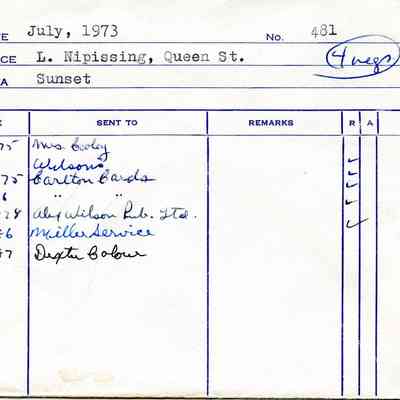 TE July, 1973 No. 481
CE L. Nipissing, Queen St. 4 negs.
A Sunset
E SENT TO REMARKS R A
75 Mrs. Cooley
Wilsons ✓
75 Carlton Cards ✓
6 " " ✓
28 Alex Wilson Pub. Ltd.
6 Miller Service ✓
7 Dexter Colour